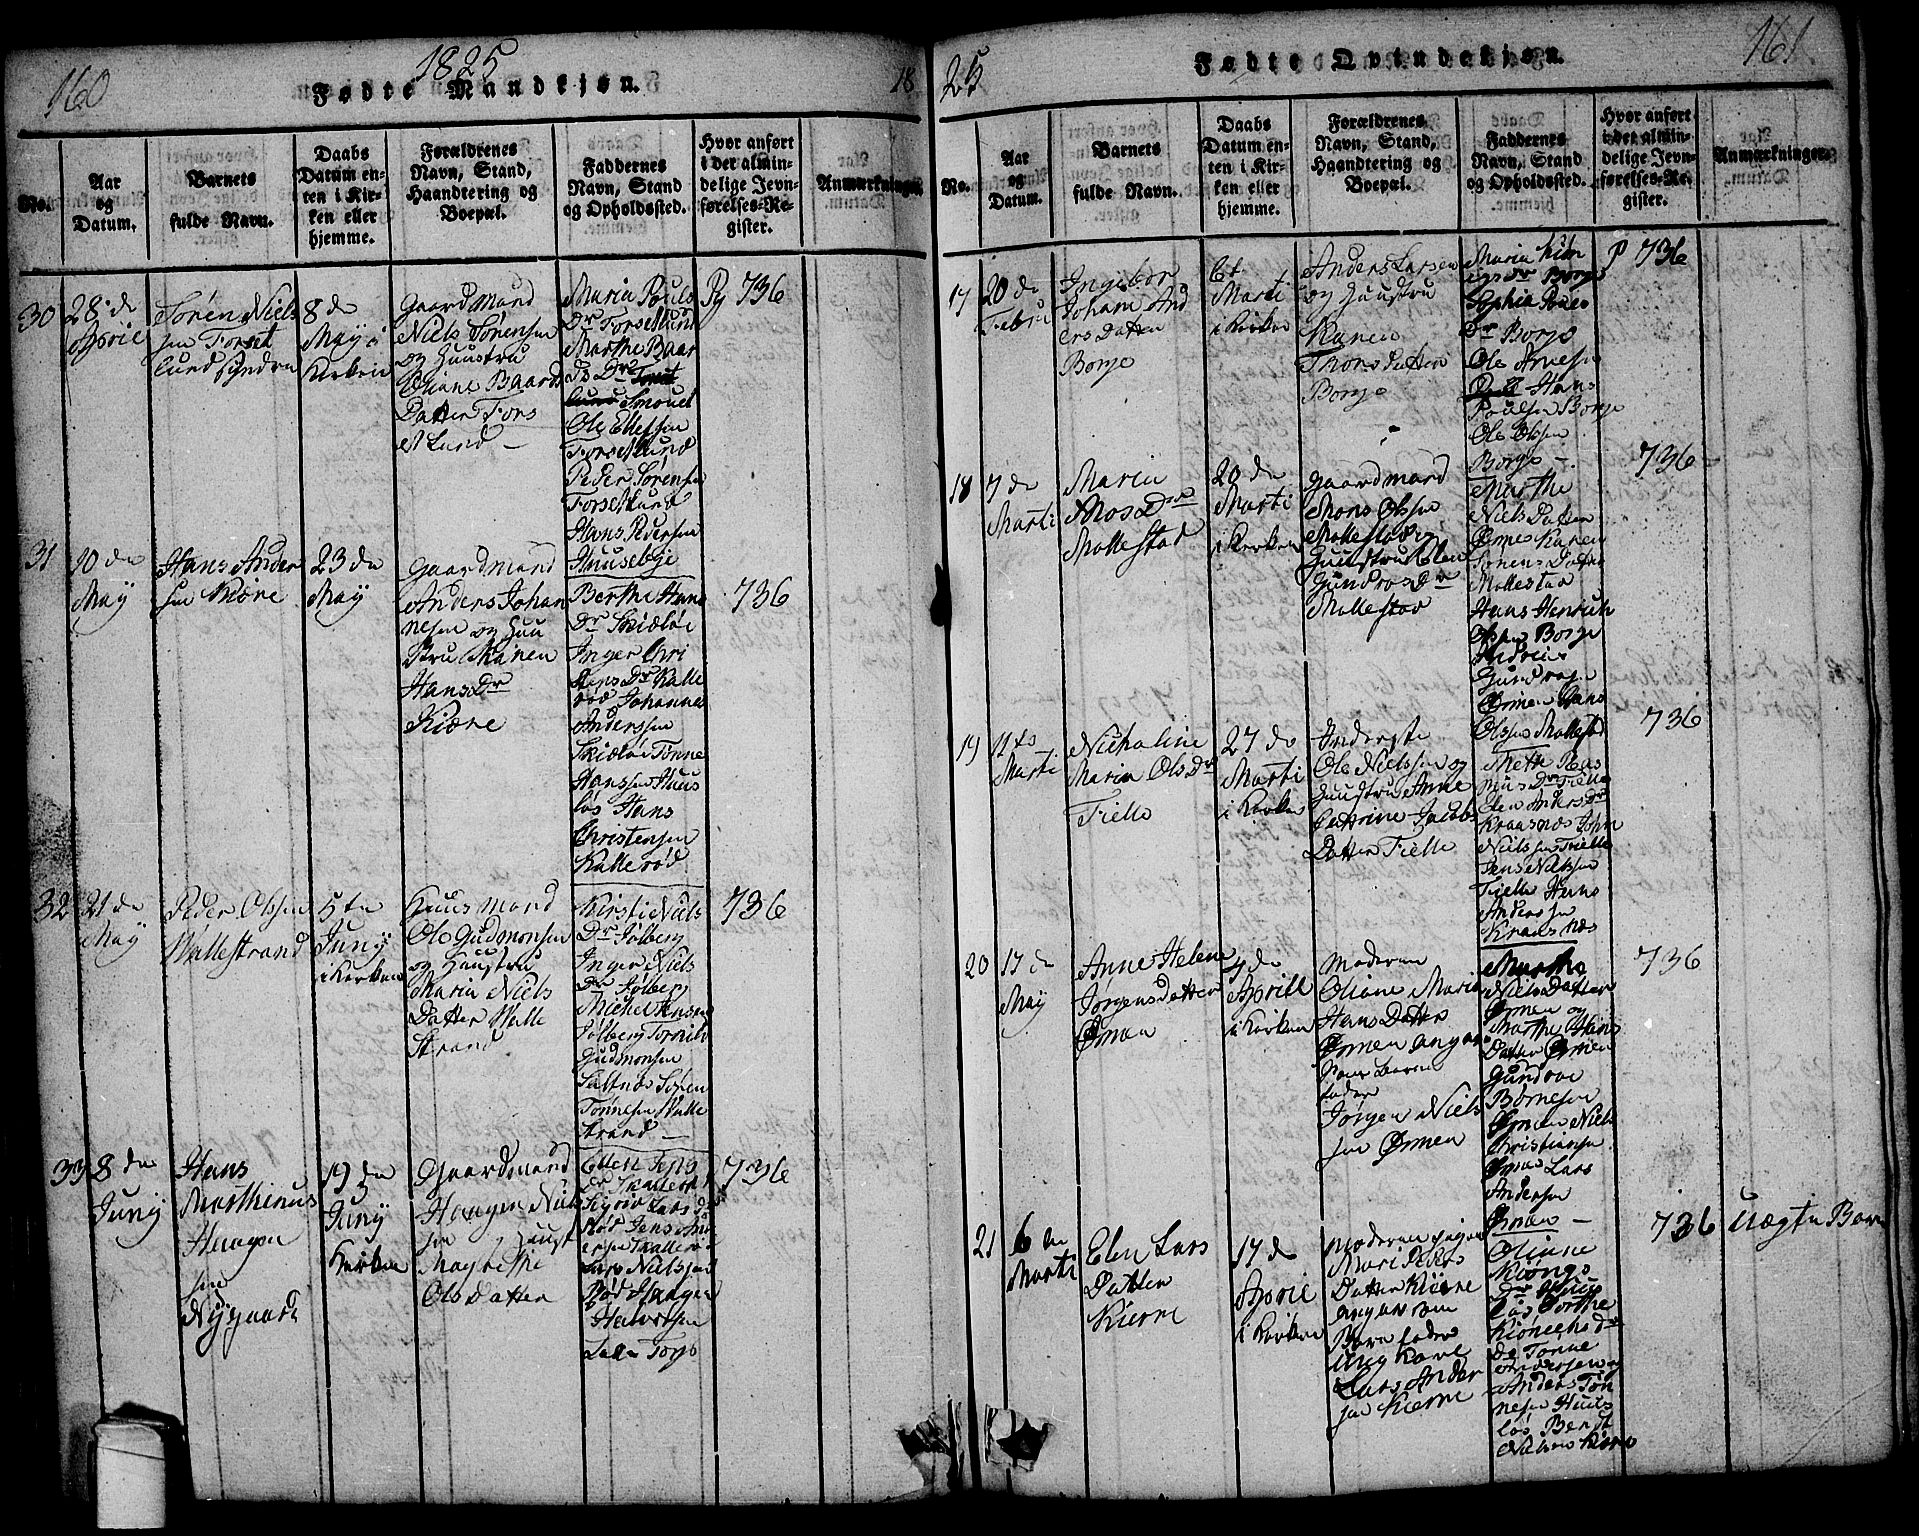 160
1825
Fødte Mandkjøn.
18
No.
Aar
og
Datum.
Barnets
fulde Navn.
Daabs
Datum en-
ten i Kir-
ken eller
hjemme.
Forældrenes
Navn, Stand,
Haandtering og
Boepæl.
Faddernes
Navn, Stand
og Opholdssted.
Hvor anført
i det almin-
delige Jevn-
førelses-Re-
gister.
Anmærkninger.
30
28de
April
Søren Niels
sen Forset
lund
8de
May i
Kirken
Gaardmand
Niels Sørensen
og Huustru
Eliane Baards
Datter Fors
etLund
Maria Pouls
Dr Forsetlund
Marthe Baar
ds Dr
Ole Ellefsen
Forsetlund
Peder Sørensen
Forsetlund
Hans Pedersen
Huusebye
736
31
10de
May
Hans Ander
sen Kiærne
23de
May
Gaardmand
Anders Johan
nesen og Huu
stru Maren
Hans Dr
Kiærne
Berthe Hans
Dr Skidløi
Inger Chri
stens Dr Kalle
rød Johannes
Anderssen
Skidløi Tønne
Hanssen Huus
løs Hans
Christensen
Kallerød
736
32
21de
May
Peder Olssen
Wallestrand
5te
Juny
i Kirken
Huusmand
Ole Gudmonsen
og Huustru
Maria Niels
Datter Walle
Strand
Kirsti Niels
Dr Sølberg
Inger Niels
Dr Sølberg
Michel Jensen
Sølberg
Gudmonsen
Saltnæs Søren
Tønnesen Walle
strand
736
33
8de
Juny
Hans
Marthinus
Haagen
sen
Nygaard
19de
Juny
Kirken
Gaardmand
Haagen Niel
sen Huust
Magrethe
Ols Datter
Ellen Jens
Dr Kallerød
Rød Jens An
dersen Kallerød
Lars Nielsen
Rød Haagen
Halvorsen
736
25
Fødte Qvindekjøn.
161
No.
Aar
og
Datum.
Barnets
fulde Navn.
Daabs
Datum en-
ten i Kir-
ken eller
hjemme.
Forældrenes
Navn, Stand,
Haandtering og
Boepæl.
Faddernes
Navn, Stand
og Opholdssted.
Hvor anført
i det almin-
delige Jevn-
førelses-Re-
gister.
Anmærkninger.
17
20de
Febru
Ingebor
Johan And
ers Datter
Borge
6t
Marti
i Kirken
Anders Larsen
og Huustru
Karen
Thors Datter
Borge
Maria
Dr Borge
Sophia Poules
Dr Borge
Ole Arnesen
Hans
Poulsen Borge
Ole Olssen
Borge
736
18
7de
Marti
Maria
Mons Dr
Mollestad
20de
Marti
i Kirken
Gaardmand
Mons Olssen
Mollestad og
Huustru Elen
Gundros Dr
Mollestad
Marthe
Niels Datter
Ørmen Karen
Sørens Datter
Mollestad
Hans Henrich
Olssen Borge
Andreas
Gundrosen
Ørmen Hans
Olssen Mollestad
736
19
11te
Marti
Nicholine
Maria Ols Dr
Fielle
27de
Marti
i Kirken
Inderste
Ole Nielssen og
Huustru Anne
Cathrine Jacobs
Datter Fielle
Mette Ras
mus Dr Fielle
Elen Anders Dr
Kraasnæs John
Nielssen Fielle
Jens Nielssen
Fielle Hans
Anderssen
Kraasnæs
736
20
17de
May
Anne Helene
Jørgensdatter
Ørmen
4de
Aprill
i Kirken
Moderen
Oliane Maria
Hans Datter
Ørmen angav
som Barne
fader
Jørgen Niels
sen Ørmen
Marthe
Niels Datter
Ørmen og
Marthe Hans
Datter Ørmen
Gundroe
Bornesen
Ørmen Niels
Christiansen
Ørmen Lars
Andersen
Ørmen
736
21
6te
Marti
Elen Lars
Datter
Kierne
17de
April
i Kirken
Moderen Pigen
Mari Peders
Datter Kierne
angav som
Barnfader
Ung Karl
Lars Ander
sen Kierne
Oliane
Kiøngs
Dr Huus
løs Dorthe
Tønne
Andersen og
Anders Tøn
nesen Huus
løs Bendt
Nielsen Kierne
736
Uægte Barn